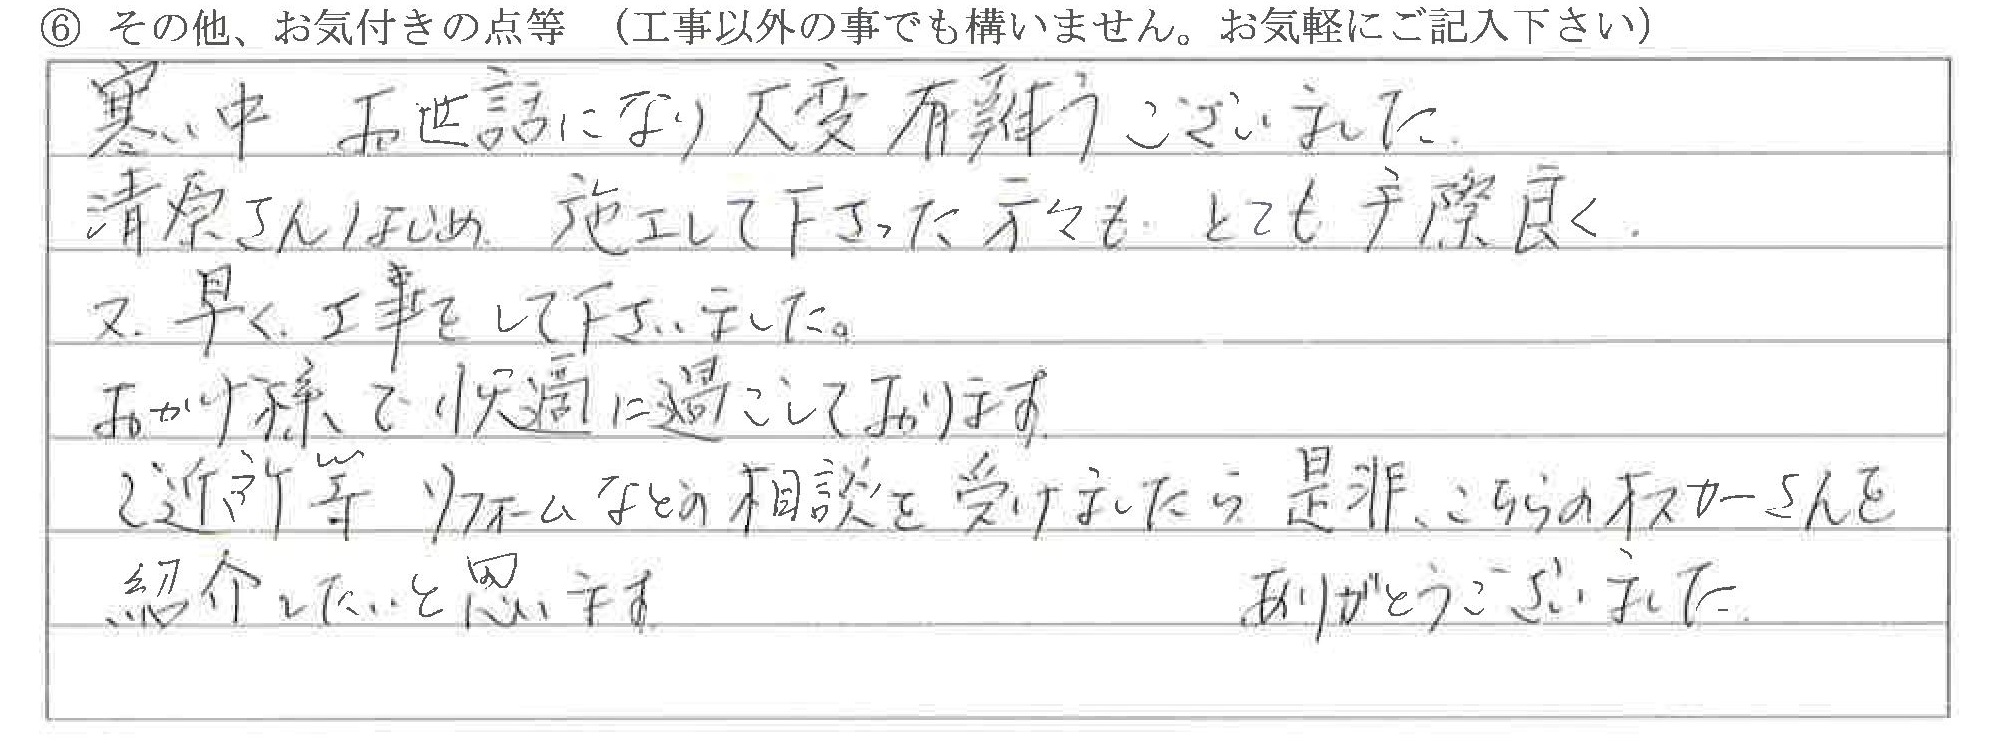 ⑥ その他、お気付きの点等 （工事以外の事でも構いません。お気軽にご記入下さい）
寒い中 お世話になり大変有難うございました.
清原さんはじめ. 施工して下さった方々も とても手際良く.
又. 早く. 工事をして下さいました。
おかげ様で快適に過ごしております.
ご近所等 リフォームなどの相談を受けましたら 是非、こちらのオスカーさんを
紹介したいと思います. ありがとうございました.